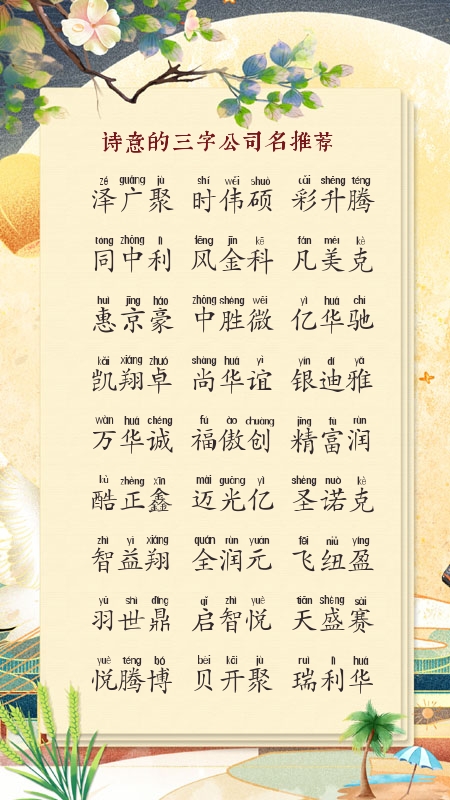 诗意的三字公司名推荐
zé guǎng jù shí wěi shuò cǎi shēng téng
泽广聚 时伟硕 彩升腾
tóng zhōng lì fēng jīn kē fán měi kè
同中利 风金科 凡美克
huì jīng háo zhōng shèng wēi yì huá chí
惠京豪 中胜微 亿华驰
kǎi xiáng zhuó shàng huá yì yín dí yǎ
凯翔卓 尚华谊 银迪雅
wàn huá chéng fú ào chuàng jīng fù rùn
万华诚 福傲创 精富润
kù zhèng xīn mài guāng yì shèng nuò kè
酷正鑫 迈光亿 圣诺克
zhì yì xiáng quán rùn yuán fēi niǔ yíng
智益翔 全润元 飞纽盈
yǔ shì dǐng qǐ zhì yuè tiān shèng sài
羽世鼎 启智悦 天盛赛
yuè téng bó bèi kāi jù ruì lì huá
悦腾博 贝开聚 瑞利华